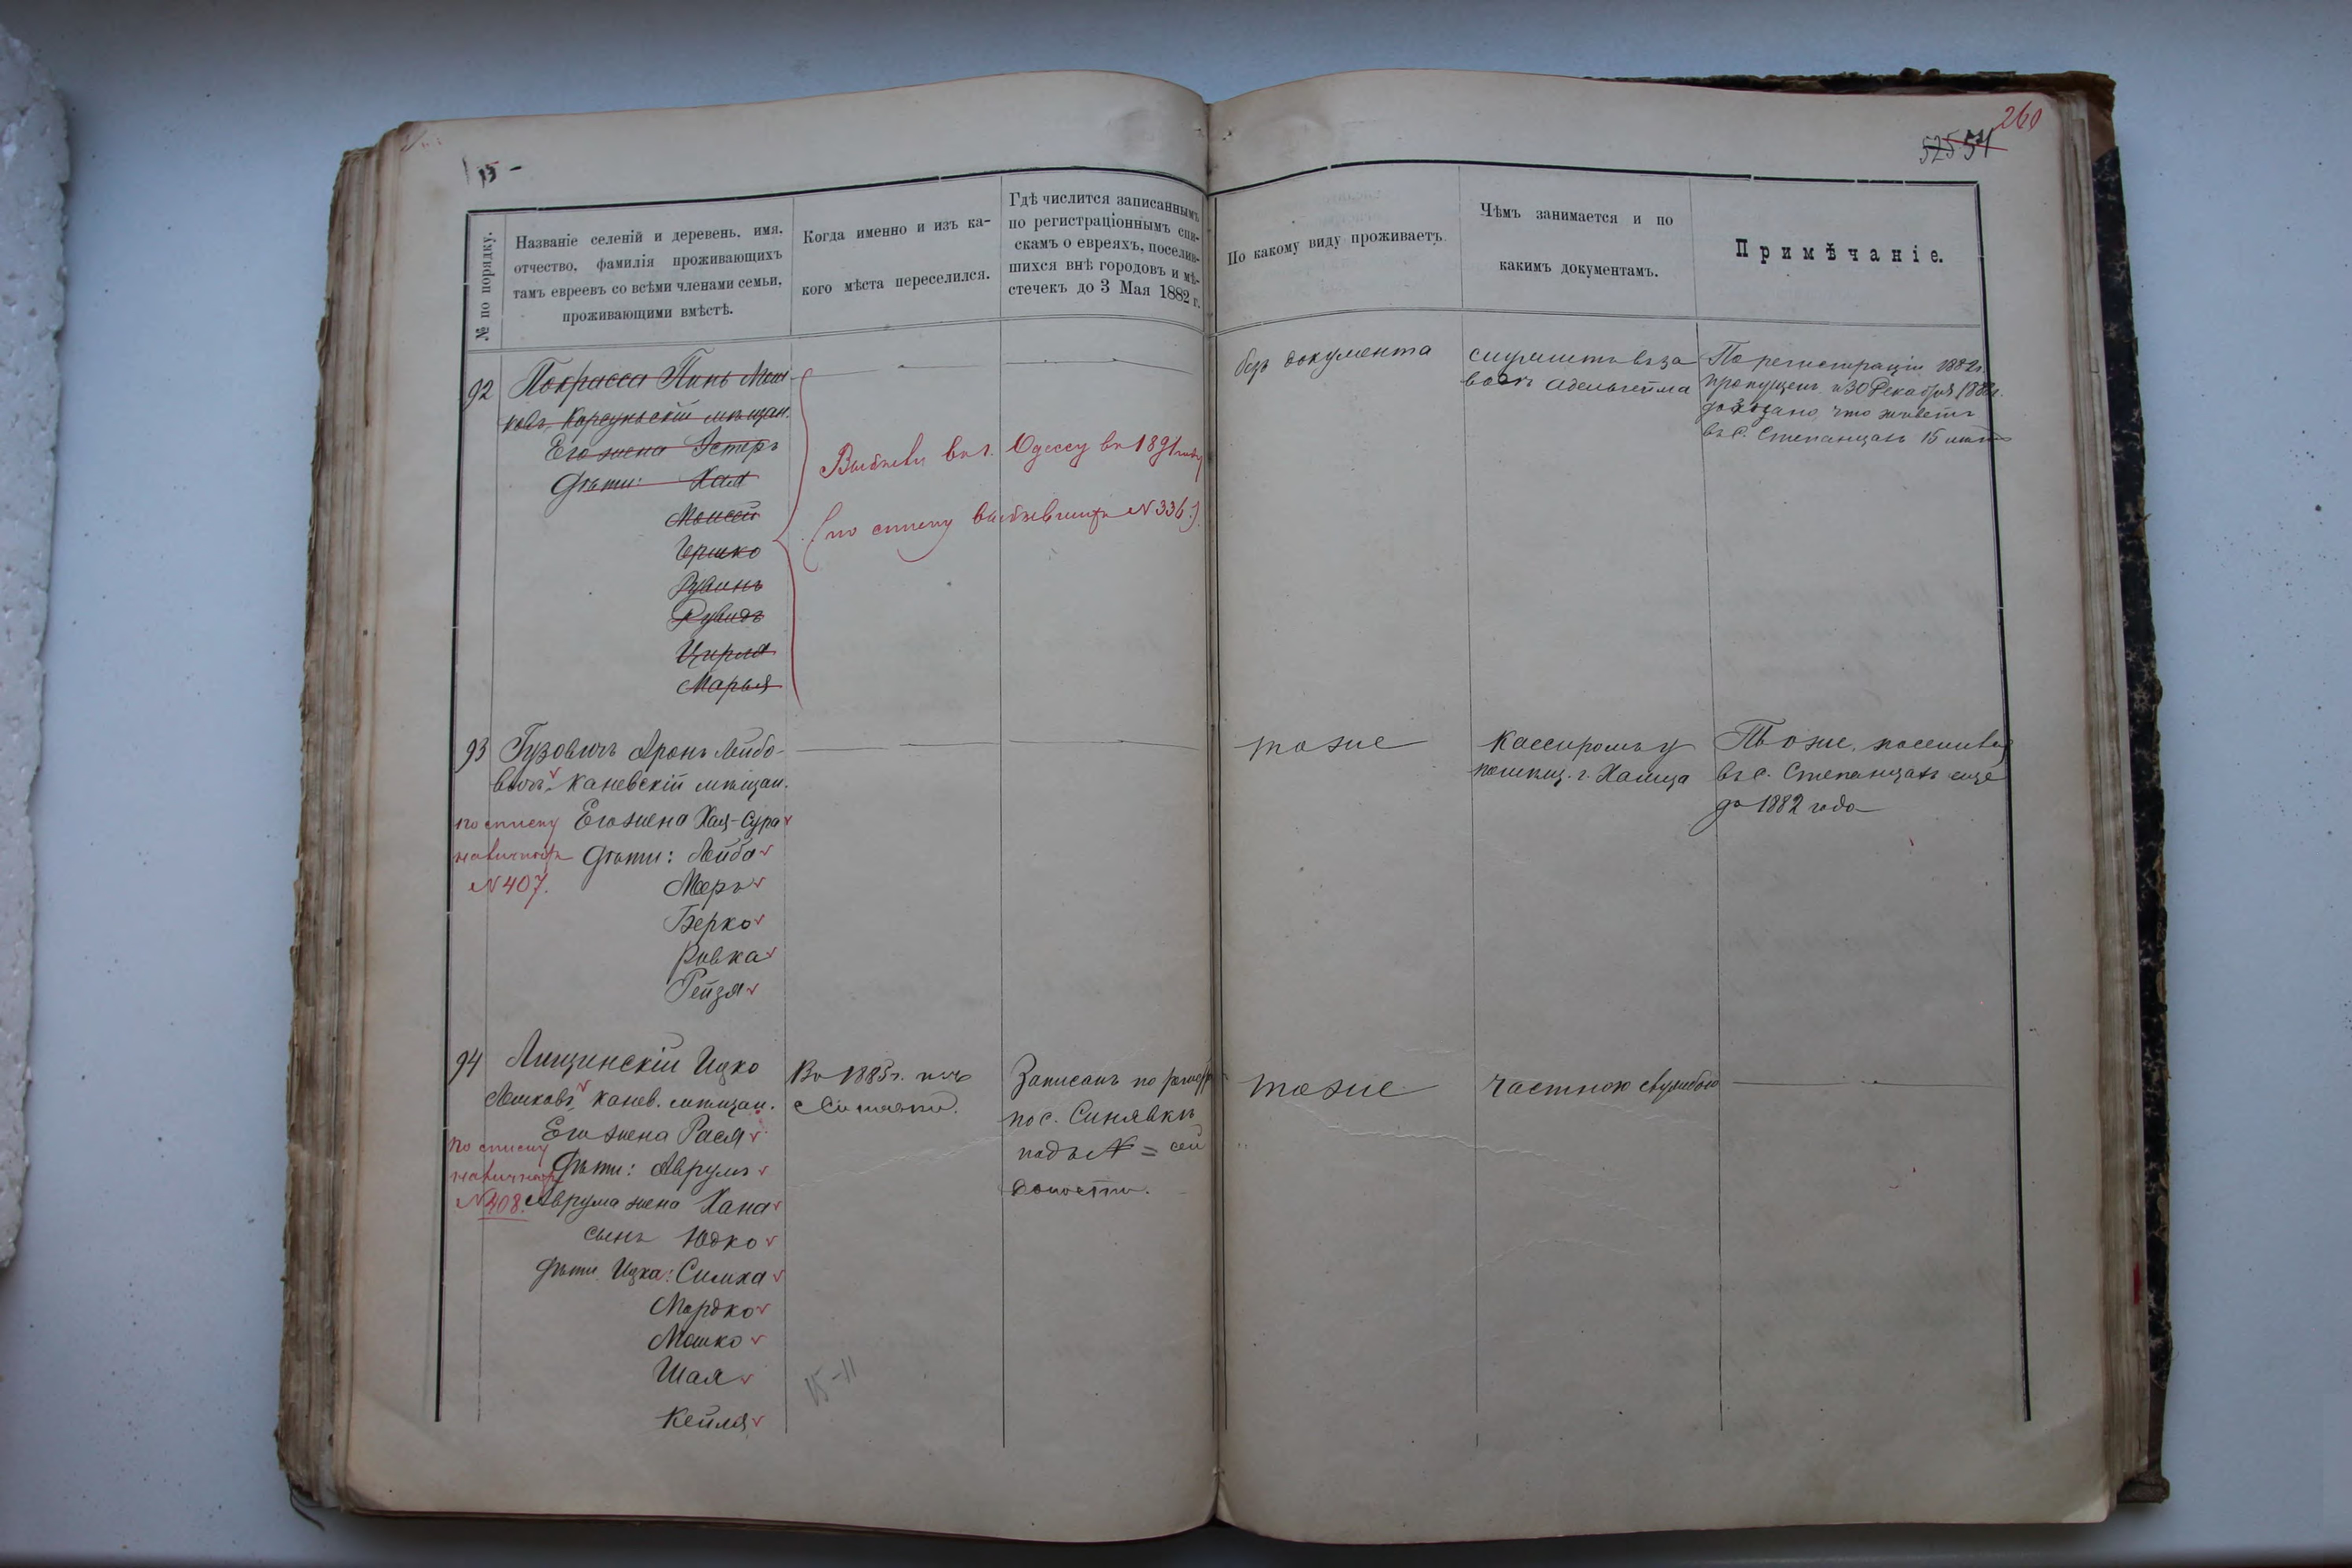 15 -
260
525 54
№ по порядку.
Названіе селеній и деревень, имя,
отчество, фамилія проживающихъ
тамъ евреевъ со всѣми членами семьи,
проживающими вмѣстѣ.
Когда именно и изъ ка-
кого мѣста переселился.
Гдѣ числится записаннымъ
по регистраціоннымъ спи-
скамъ о евреяхъ, поселив-
шихся внѣ городовъ и мѣ-
стечекъ до 3 Мая 1882 г.
По какому виду проживаетъ.
Чѣмъ занимается и по
какимъ документамъ.
Примѣчаніе.
92
Покрасса Пинь Мош
ковъ, Корсунскій мѣщан.
Его жена Эстеръ
Дѣти: Хая
Моисей
Гершко
Рувинъ
Цирля
Марья
Выбылъ въ г. Одессу въ 1891 году
(по списку выбывшихъ N 336.)
безъ документа
служитъ въ за
водѣ Адельгейма
По регистраціи 1882 г.
пропущенъ и 30 Декабря 188
доказано, что живетъ
въ с. Степанцахъ 15 лѣтъ
93
Гузовичъ Аронъ Лейбо-
вичъ, Каневскій мѣщан.
Его жена Хая-Сура
Дѣти: Лейба
Меръ
Берко
Ривка
Рейзя
по списку
наличныхъ
N 407.
тоже
Кассиромъ у
помѣщ. г. Хаица
Тоже, поселив
въ с. Степанцахъ еще
до 1882 года
94
Лищинскій Ицко
Мошковъ, Канев. мѣщан.
Его жена Рася
Дѣти: Аврумъ
Аврума жена Хана
сынъ Юдко
Дѣти Ицка: Симха
Мордко
Мошко
Шая
Кейля
по списку
наличныхъ
N 408.
Въ 1885 г. изъ
Синявки.
Записанъ по
по с. Синявкѣ
подъ № = сей
тоже
частною службою
15-11